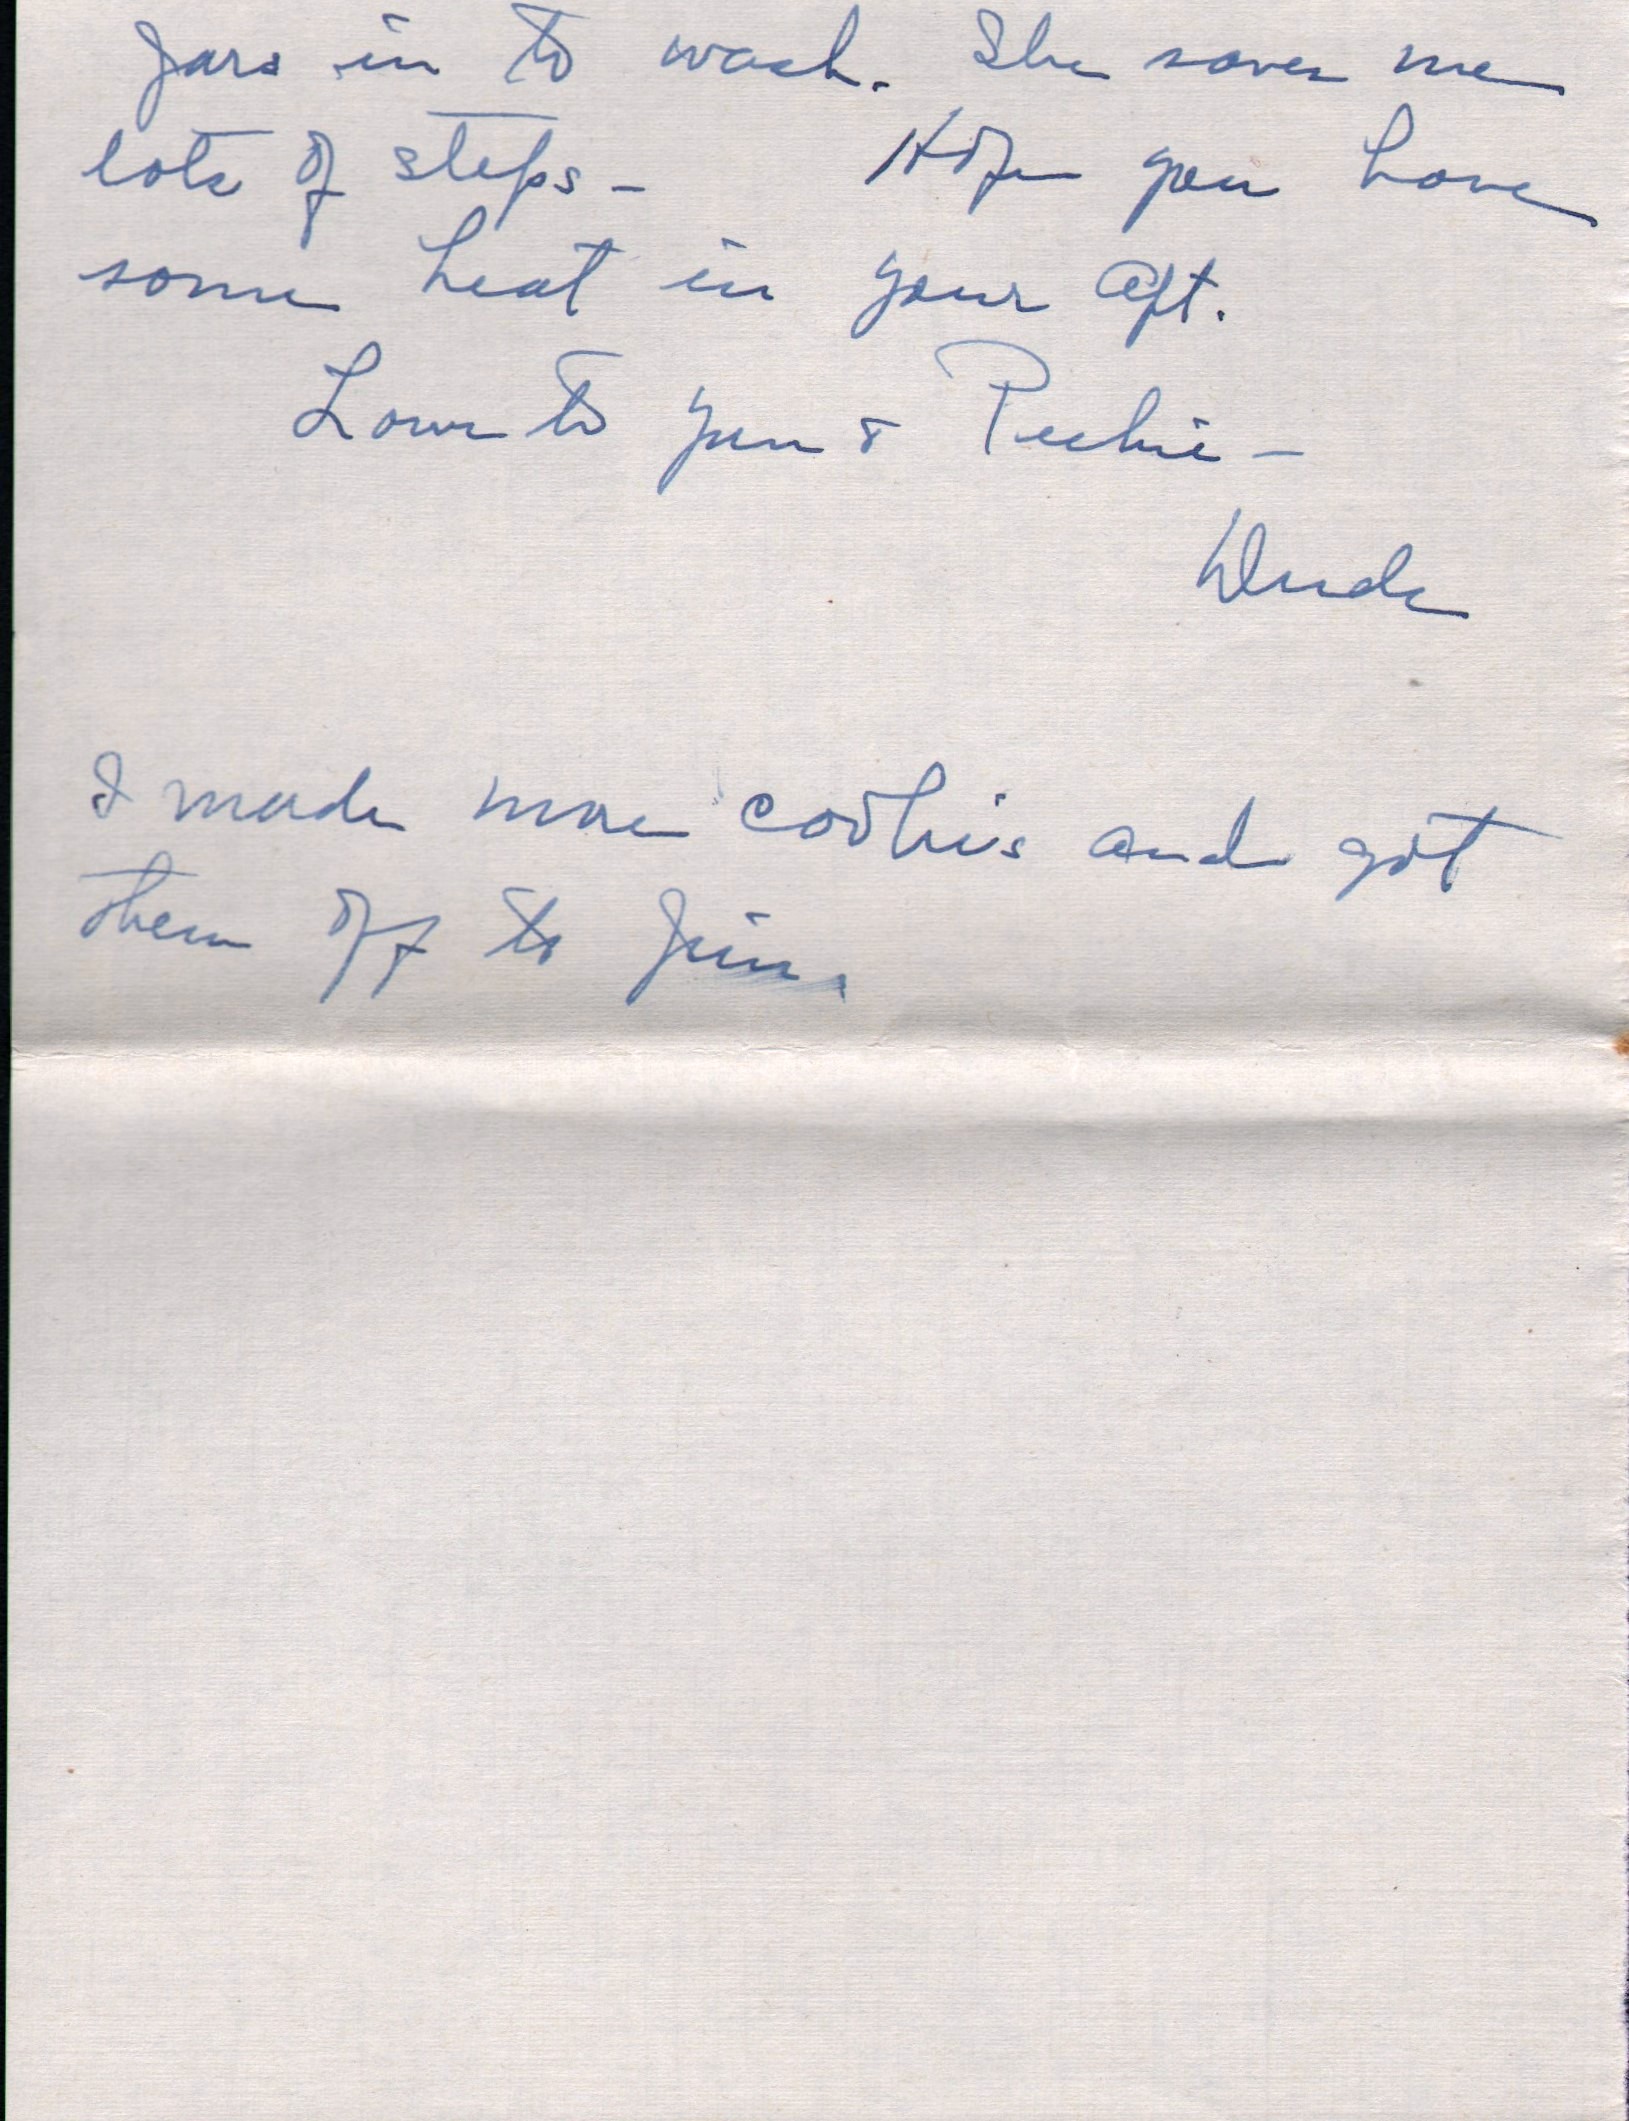 jars in to wash. She saves me
lots of steps - Hope you have
some heat in your apt.
Love to you &
Dude
I made more cookies and got
them off to Jim.